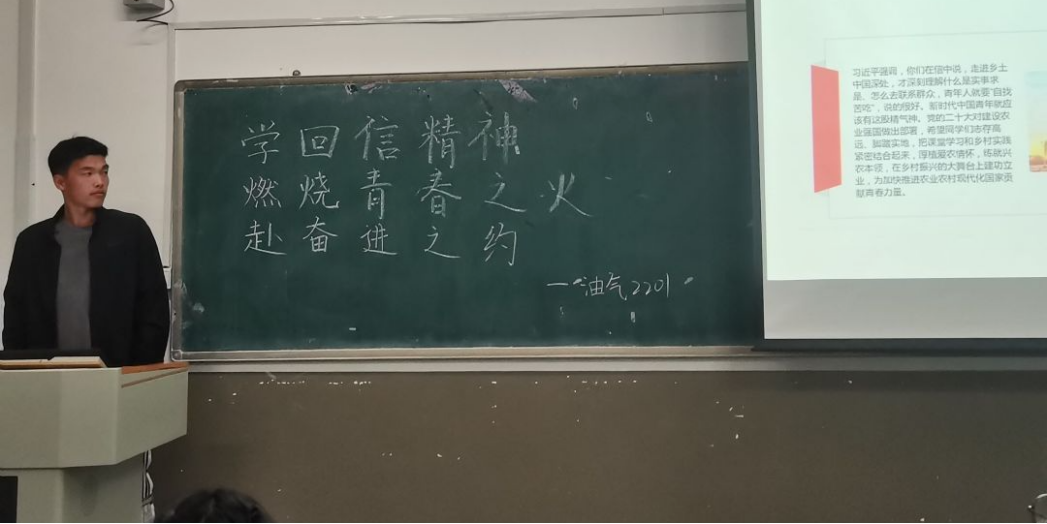 学回信精神
燃烧青春之火
赴奋进之约
一油气2201
习近平强调，你们在信中说，走进乡土
中国深处，才深刻理解什么是实事求
是、怎么去联系群众，青年人就要“自找
苦吃”，说的很好。新时代中国青年就应
该有这股精气神。党的二十大对建设农
业强国做出部署，希望同学们志存高
远、脚踏实地，把课堂学习和乡村实践
紧密结合起来，厚植爱农情怀，练就兴
农本领，在乡村振兴的大舞台上建功立
业，为加快推进农业农村现代化国家贡
献青春力量。